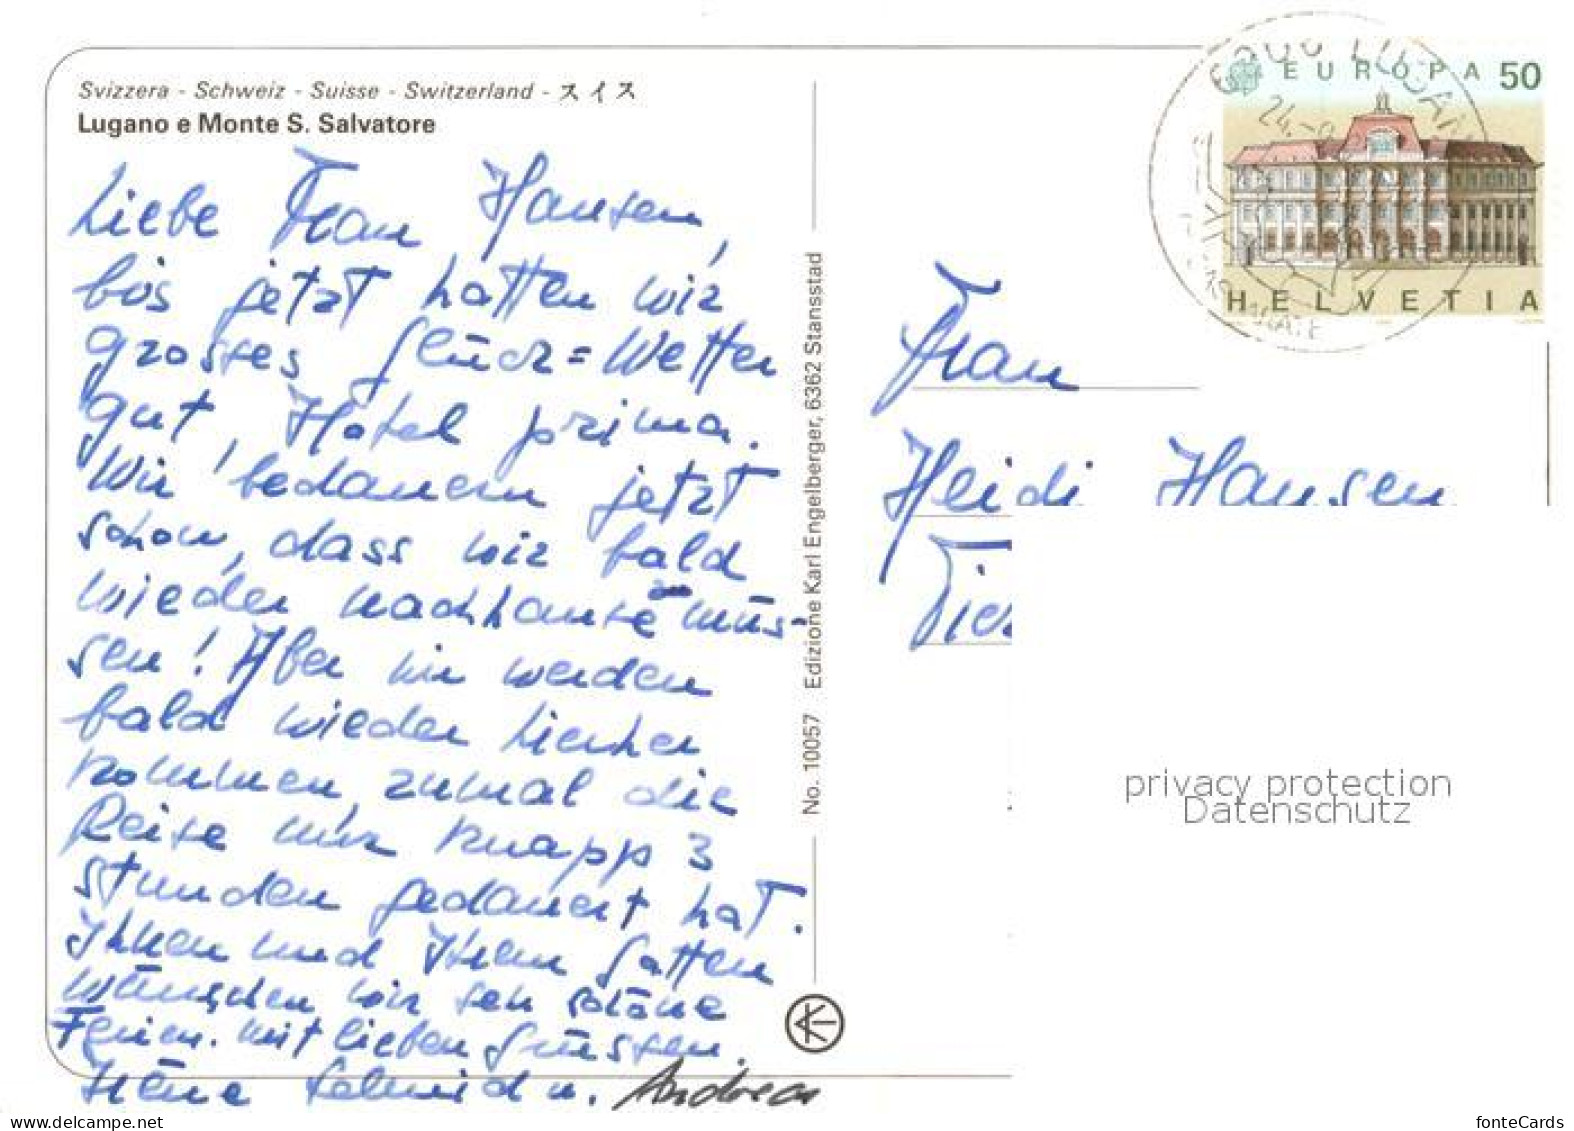 Svizzera - Schweiz - Suisse - Switzerland - スイス
Lugano e Monte S. Salvatore
Liebe Frau Hansen,
bis jetzt hatten wir
grosses Glück = Wetter
gut, Hotel prima.
Wir bedauern jetzt
schon, dass wir bald
wieder nachhause müs-
sen! Aber wir werden
bald wieder hierher
kommen, zumal die
Reise nur knapp 3
Stunden gedauert hat.
Ihnen und Ihrem Gatten
wünschen wir seh schöne
Ferien. Mit lieben Grüssen.
u. Andreas
No. 10057 Edizione Karl Engelberger, 6362 Stansstad
EUROPA 50
HELVETIA
24.
Frau
Heidi Hansen
privacy protection
Datenschutz
https://www.delcampe.net
fonteCards